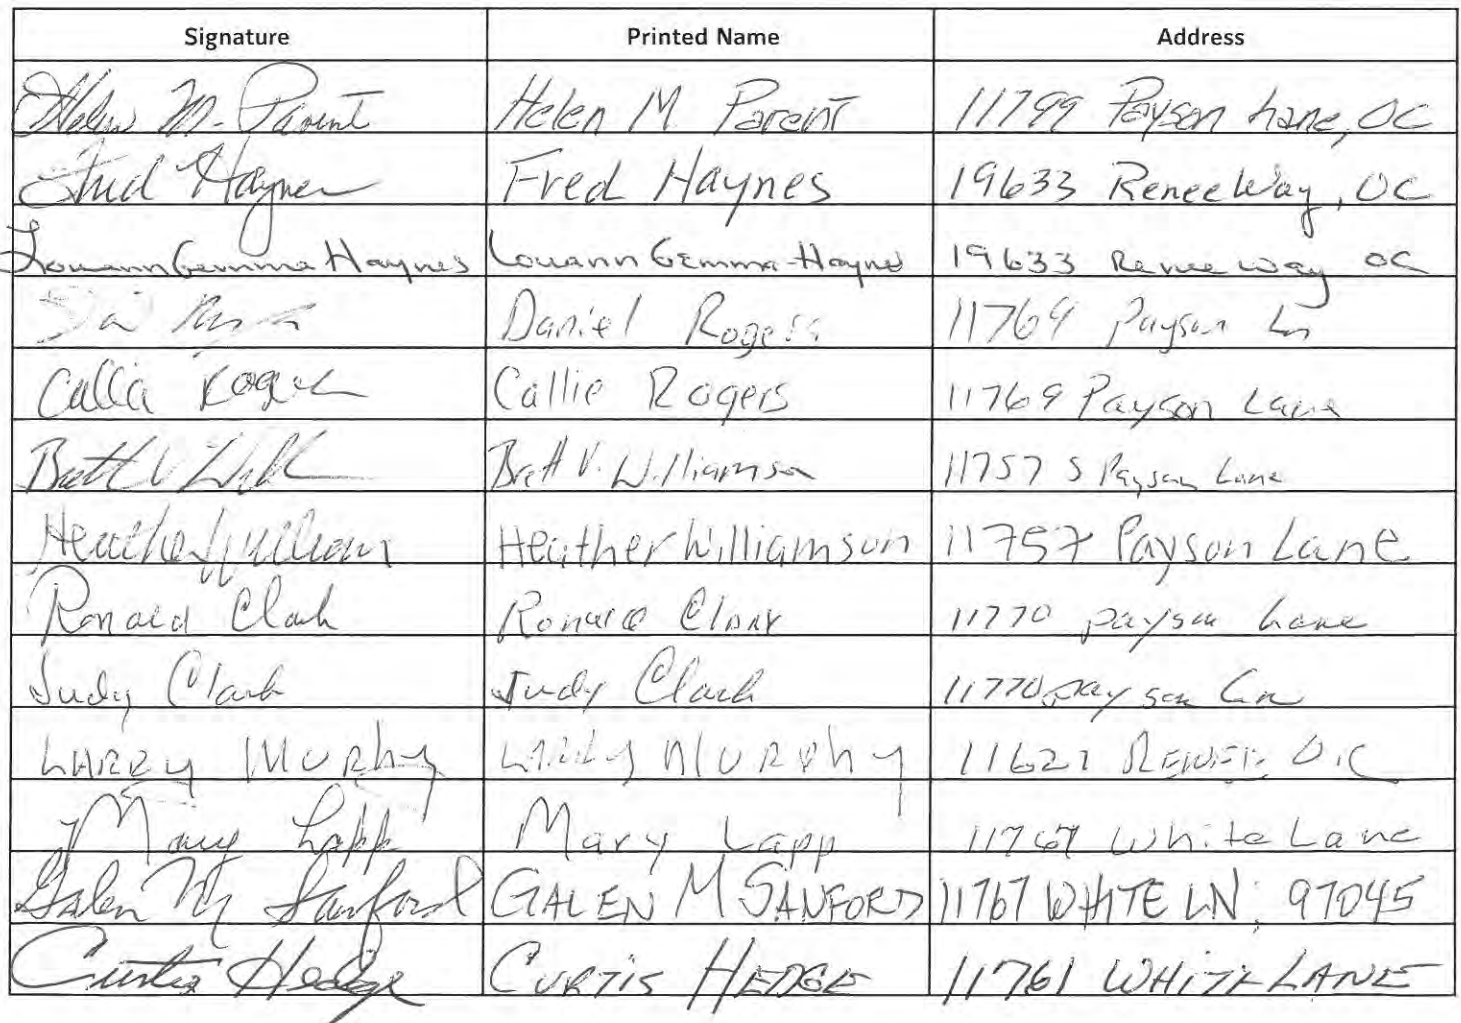 Signature Printed Name Address
Helen M. Parent Helen M Parent 11799 Payson Lane, OC
Fred Haynes Fred Haynes 19633 Renee Way, OC
Louann Gemma Haynes Louann Gemma-Haynes 19633 Renee Way OC
Daniel Rogers 11769 Payson Ln
Callie Rogers Callie Rogers 11769 Payson Lane
Brett V Brett V. Williamson 11757 S Payson Lane
Heather Williamson Heather Williamson 11757 Payson Lane
Ronald Clark Ronald Clark 11770 payson Lane
Judy Clark Judy Clark 11770 payson Ln
LARRY MURPhy LARRY MURPhy O.C
Mary Lapp Mary Lapp 11767 White Lane
Galen M Sanford GALEN M SANFORD 11767 WHITE LN, 97045
Curtis Hedge CURTIS HEDGE 11761 WHITE LANE